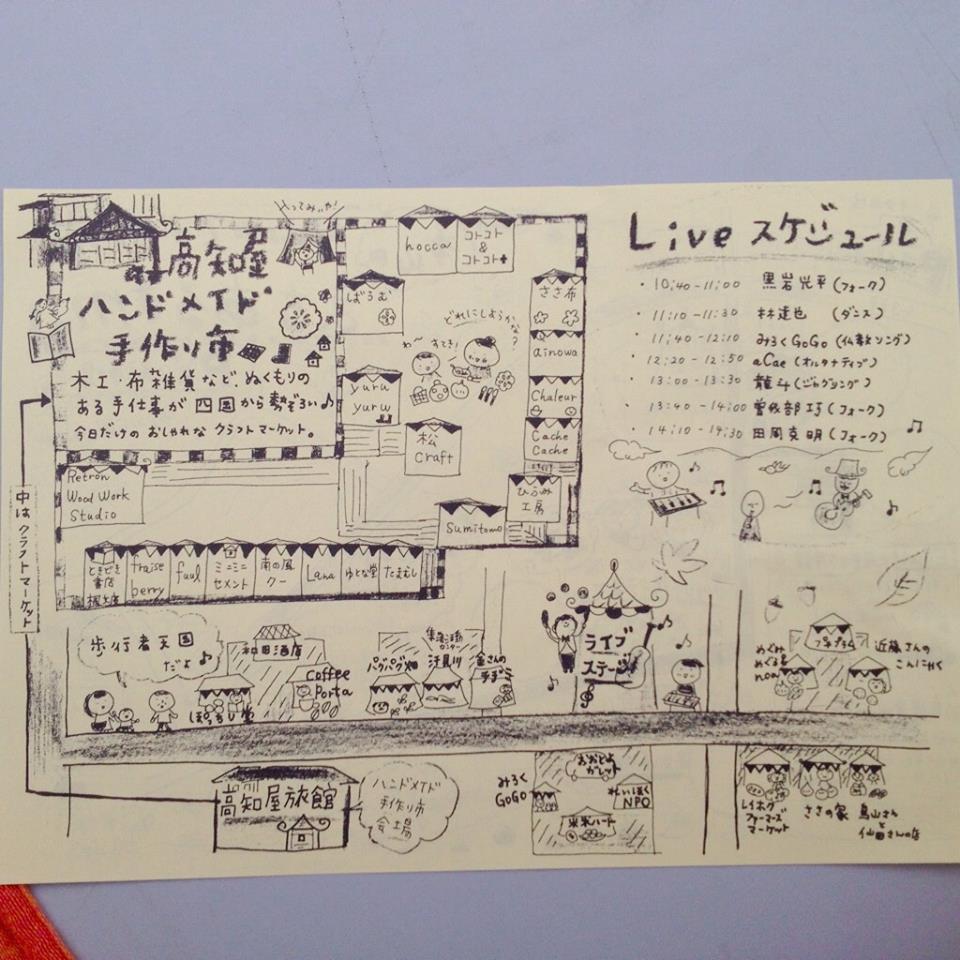 入ってみっか!
高知屋
ハンドメイド
手作り市
木工・布雑貨など、ぬくもりの
ある手仕事が四国から勢ぞろい♪
今日だけのおしゃれなクラフトマーケット。
hocca
コトコト
&
コトコト
ばうむ
ささ布
どれにしようかな?
わ〜
すてき!
ainowa
yuru
yuruw
Chaleur
松
Craft
Cache
Cache
ひろみ
工房
Sumitomo
Retron
Wood Work
Studio
ときどき
書店
fraise
berry
fuul
ミニミニ
セメント
南の風
クー
Lana
ゆとな堂
たまむし
中はクラフトマーケット
Live スケジュール
・10:40-11:00 黒岩光平(フォーク)
・11:10-11:30 林達也 (ダンス)
・11:40-12:10 みろくGoGo(仏教ソング)
・12:20-12:50 aCae(オルタナティブ)
・13:00-13:30 龍斗(ジャグリング)
・13:40-14:00 曽我部巧(フォーク)
・14:10-14:30 田岡克明(フォーク)
歩行者天国
だよ♪
和田酒店
ぽっちり堂
Coffee
Porta
パクパク畑
汗見川
金さんの
チヂミ
ライブ
ステージ
めぐみ
めぐる&
noa
近藤さんの
こんにゃく
高知屋旅館
ハンドメイド
手作り市
会場
みろく
GoGo
おおとよ
ガレット
れいほく
NPO
米米ハート
レイホク
ファーマーズ
マーケット
ささの家
鳥山さん
と
仙田さんの店